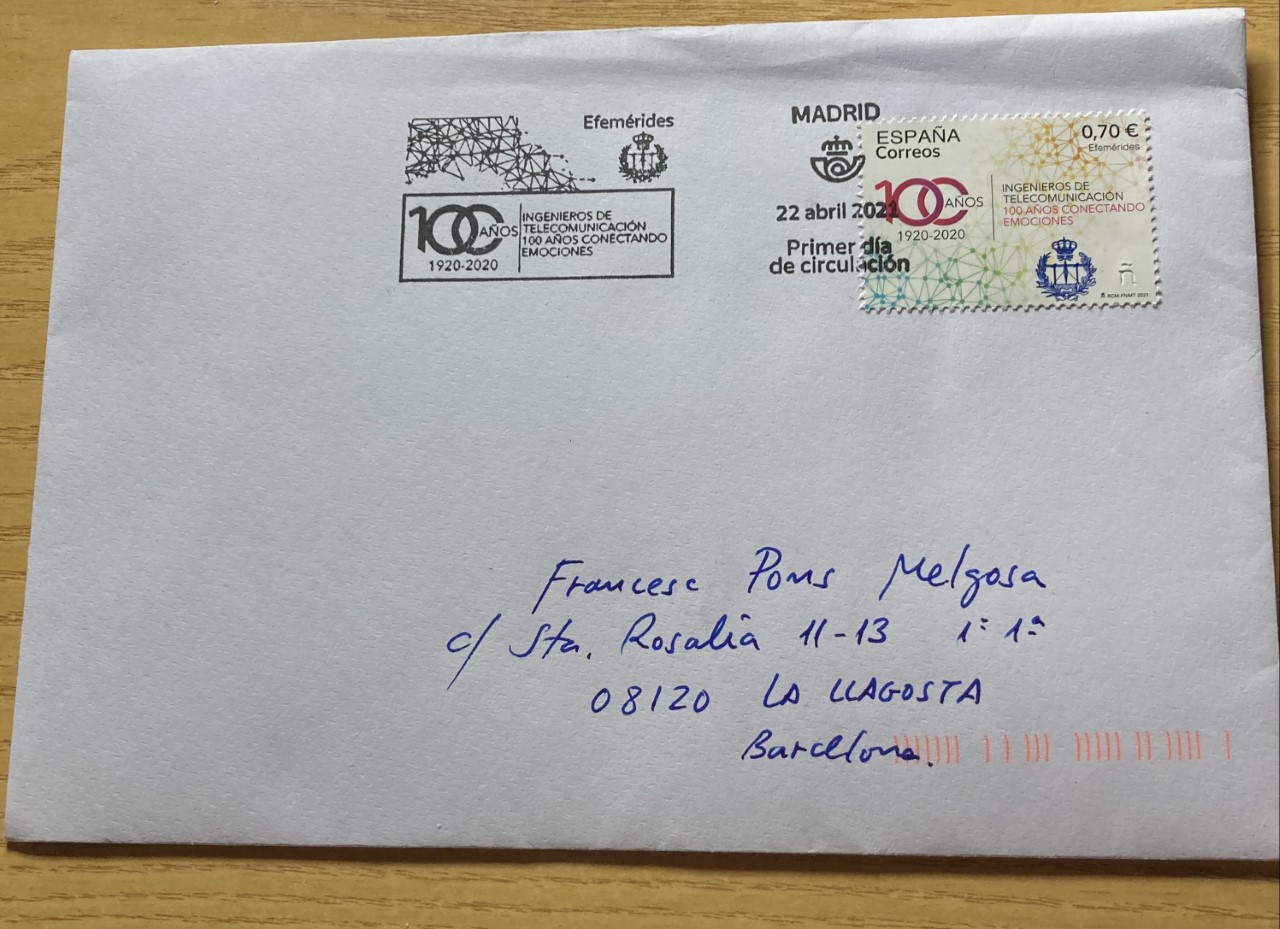 Efemérides
100 AÑOS
1920-2020
INGENIEROS DE
TELECOMUNICACIÓN
100 AÑOS CONECTANDO
EMOCIONES
MADRID
22 abril 2021
Primer día
de circulación
ESPAÑA
Correos
0,70 €
Efemérides
100 AÑOS
1920-2020
INGENIEROS DE
TELECOMUNICACIÓN
100 AÑOS CONECTANDO
EMOCIONES
ñ
RCM-FNMT 2021
Francesc Pons Melgosa
c/ Sta. Rosalia 11-13 1º 1ª
08120 LA LLAGOSTA
Barcelona.